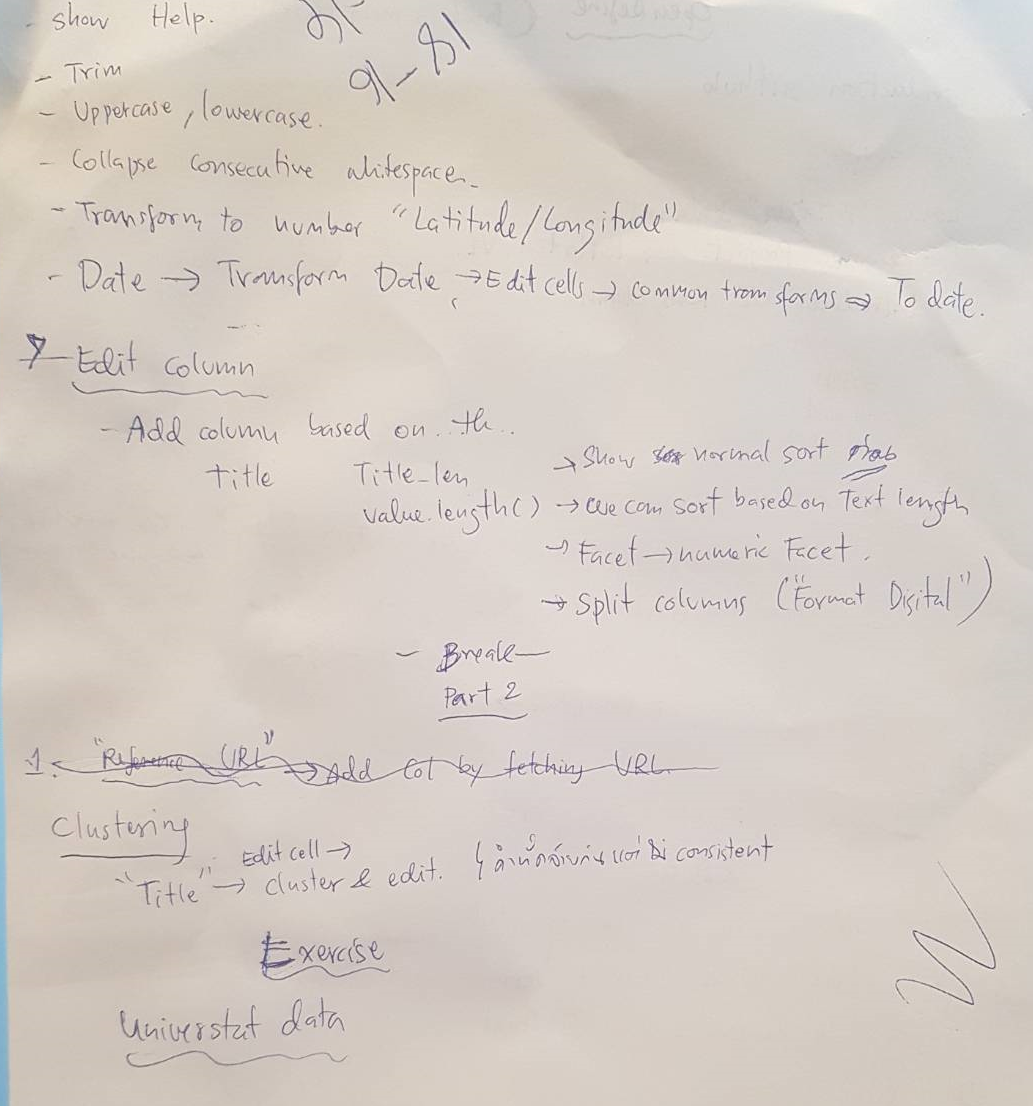 - show Help.
91-81
- Trim
- Uppercase, lowercase.
- Collapse consecutive whitespace
- Transform to number "Latitude/Longitude"
- Date → Transform Date → Edit cells → common transforms ⇒ To date.
Edit column
- Add column based on th..
title Title_len → Show normal sort
value.length() → we can sort based on Text length
→ Facet → numeric Facet.
→ Split columns ("Format Digital")
- Break -
Part 2
1. "Reference URL" → Add Col by fetching URL
Clustering
Edit cell →
"Title" → cluster & edit. consistent
Exercise
Universtat data